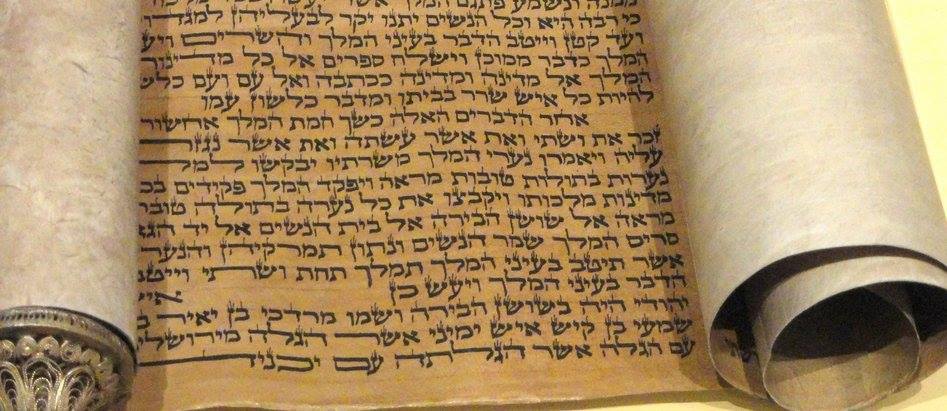 ונשמע פתגם המלך אשר
כי רבה היא וכל הנשים יתנו יקר לבעליהן למגדו
ועד קטן וייטב הדבר בעיני המלך והשרים ויע
המלך כדבר ממוכן וישלח ספרים אל כל מדינו
המלך אל מדינה ומדינה ככתבה ואל עם ועם כלש
להיות כל איש שרר בביתו ומדבר כלשון עמו
אחר הדברים האלה כשך חמת המלך אחשור
זכר את ושתי ואת אשר עשתה ואת אשר נגזר
עליה ויאמרו נערי המלך משרתיו יבקשו למל
נערות בתולות טובות מראה ויפקד המלך פקידים בכ
מדינות מלכותו ויקבצו את כל נערה בתולה טוב
מראה אל שושן הבירה אל בית הנשים אל יד הגא
סריס המלך שמר הנשים ונתון תמרקיהן והנער
אשר תיטב בעיני המלך תמלך תחת ושתי וייט
הדבר בעיני המלך ויעש כן איש
יהודי היה בשושן הבירה ושמו מרדכי בן יאיר ב
שמעי בן קיש איש ימיני אשר הגלה מירושלי
עם הגלה אשר הגלתה עם יכניה